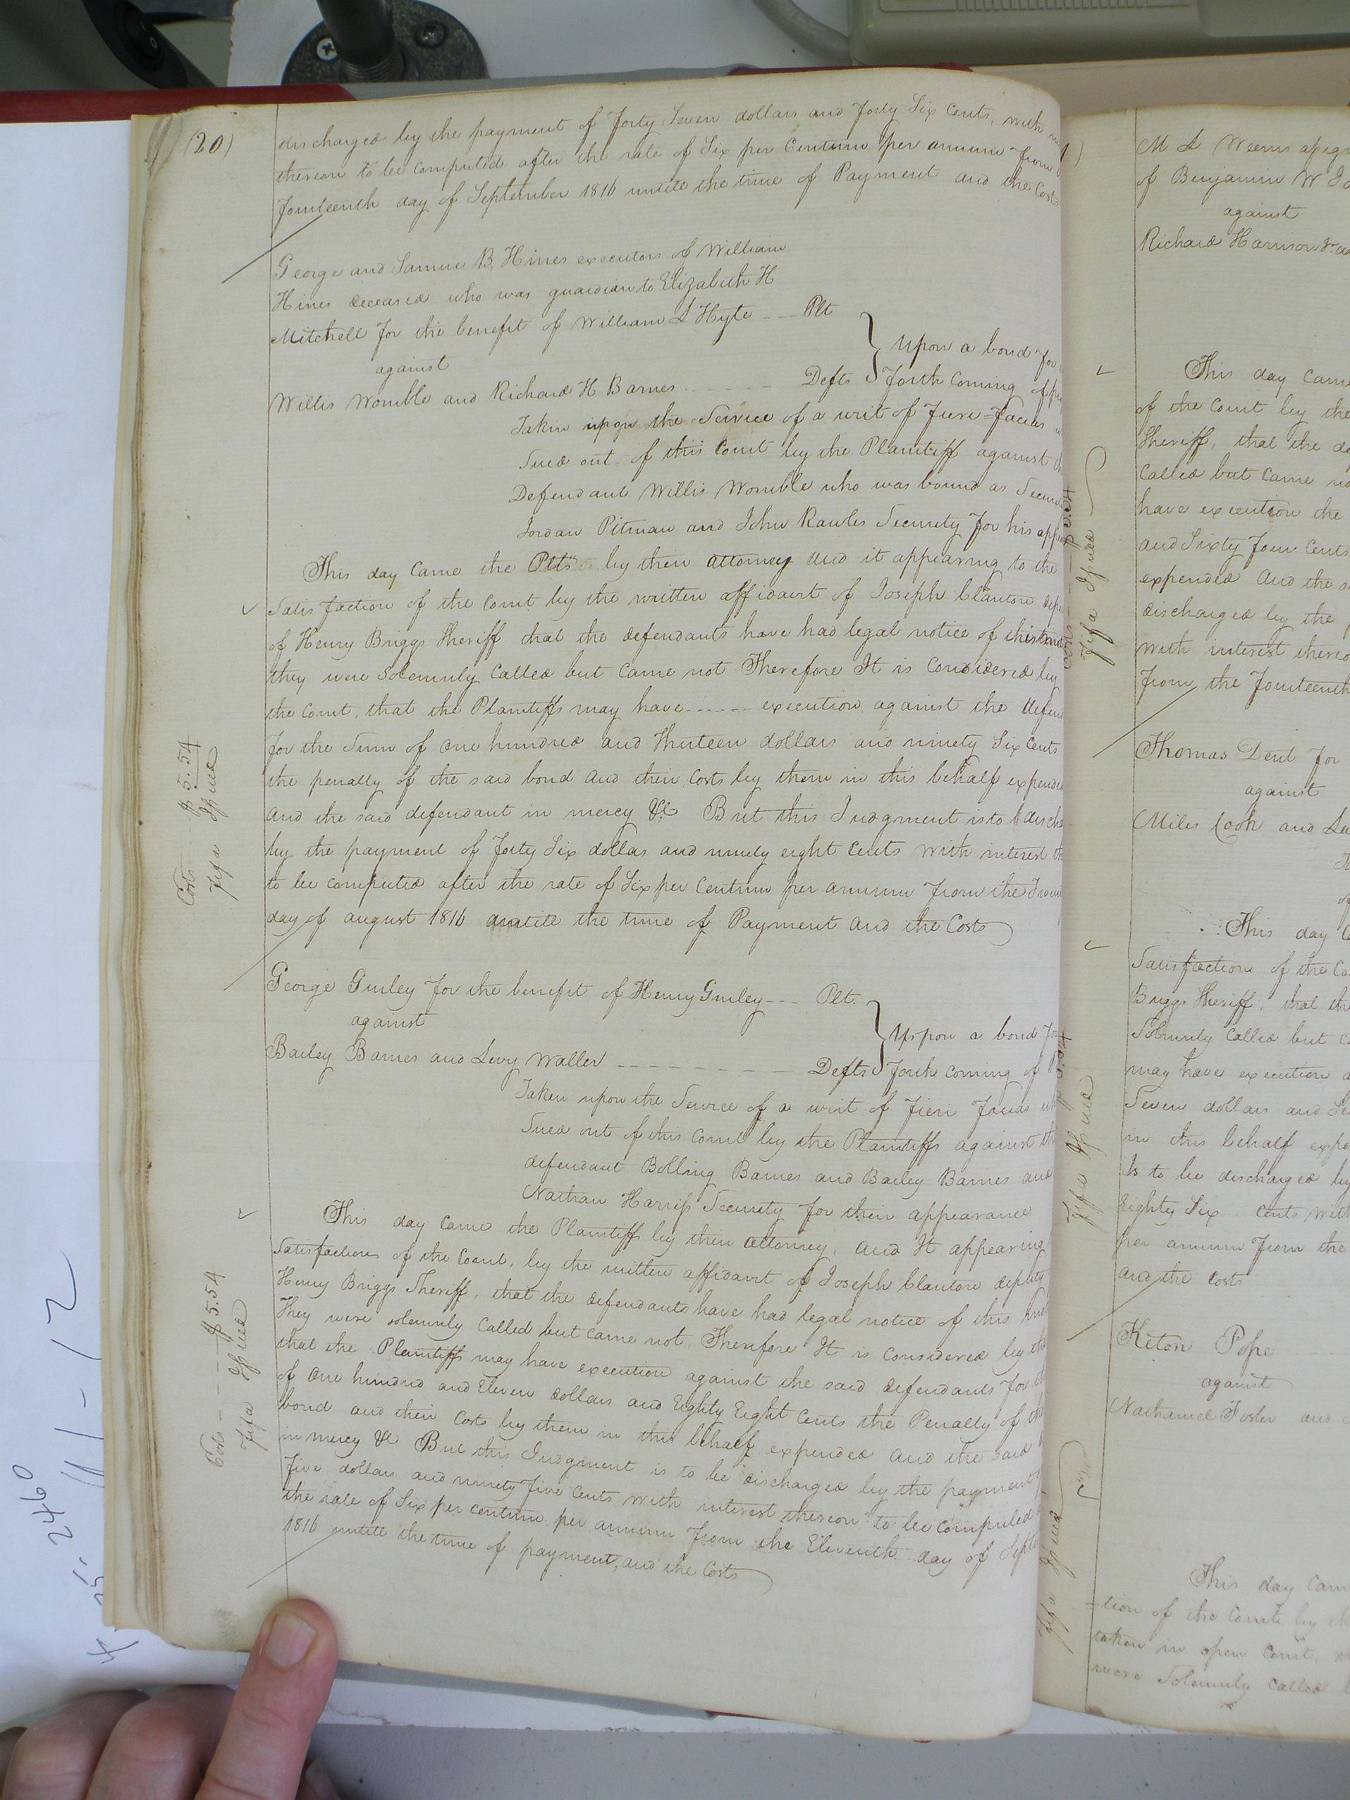 (20)
discharged by the payment of Forty Seven dollars and Forty Six Cents, with
thereon to be computed after the rate of Six per Centum per annum from
Fourteenth day of September 1816 untill the time of Payment and the Costs
George and Samuel B. Hines executors of William
Hines deceased who was guardian to Elizabeth H
Mitchell for the benefit of William L Hyte --- Plt
against
Willis Womble and Richard H Barnes - - - - - - Defts
} Upon a bond for
forth coming of
Taken upon the Service of a writ of Fieri=Facias
Sued out of this Court by the Plaintiff against
Defendant Willis Womble who was bound as
Jordan Pitman and John Rawles Security for his
This day Came the Plts by their attorney and it appearing to the
Satisfaction of the Court by the written affidavit of Joseph Clanton
of Henry Briggs Sheriff that the defendants have had legal notice of this
they were Solemnly Called but Came not Therefore It is Considered by
the Court, that the Plaintiffs may have ------ execution against the
for the Sum of one hundred and thirteen dollars and ninety Six Cents
the penalty of the said bond and their Costs by them in this behalf
and the said defendant in mercy &c But this Judgment is to be
by the payment of Forty Six dollars and ninety eight Cents with interest
to be computed after the rate of Six per Centum per annum from the
day of august 1816 untill the time of Payment and the Costs
Costs $5.54
Fifa Issued
George Gurley for the benefit of Henry Gurley --- Plt.
against
Bailey Barnes and Levy Waller - - - - - - - - Defts
} Upon a bond
forth coming of
Taken upon the Service of a writ of Fieri Facias
Sued out of this Court by the Plaintiffs against the
defendant Bolling Barnes and Bailey Barnes and
Nathan Harriss Security for their appearance
This day came the Plaintiff by their attorney, and It appearing
Satisfaction of the Court, by the written affidavit of Joseph Clanton deputy
Henry Briggs Sheriff, that the defendants have had legal notice of this
They were solemnly Called but came not. Therefore It is Considered by the
that the Plaintiff may have execution against the said defendants for
of one hundred and Eleven dollars and Eighty Eight Cents the Penalty of the
bond and their Costs by them in this behalf expended and the said
in mercy &c But this Judgment is to be discharged by the payment
five dollars and ninety five Cents with interest thereon to be Computed
the rate of Six per centum per annum from the Eleventh day of
1816 untill the time of payment, and the Costs
Costs - - - - $5.54
Fifa Issued
M L Weems
of Benjamin W
against
Richard Harrison
This day came
of the Court by the
Sheriff, that the
Called but Came
have execution the
and Sixty Four Cents
expended and the
discharged by the
with interest
From the Fourteenth
Fifa Issued
Thomas Dent for
against
Miles Cook and
This day
Satisfaction of the
Briggs Sheriff, that the
Solemnly Called but
may have execution
Seven dollars and
in this behalf
Is to be discharged by
Eighty Six Cents with
per annum from the
and the Costs
Fifa Issued
Kiton Pope
against
Nathaniel Foster and
This day Came
=tion of the Court by
taken in open Court,
were Solemnly Called
Fifa Issued